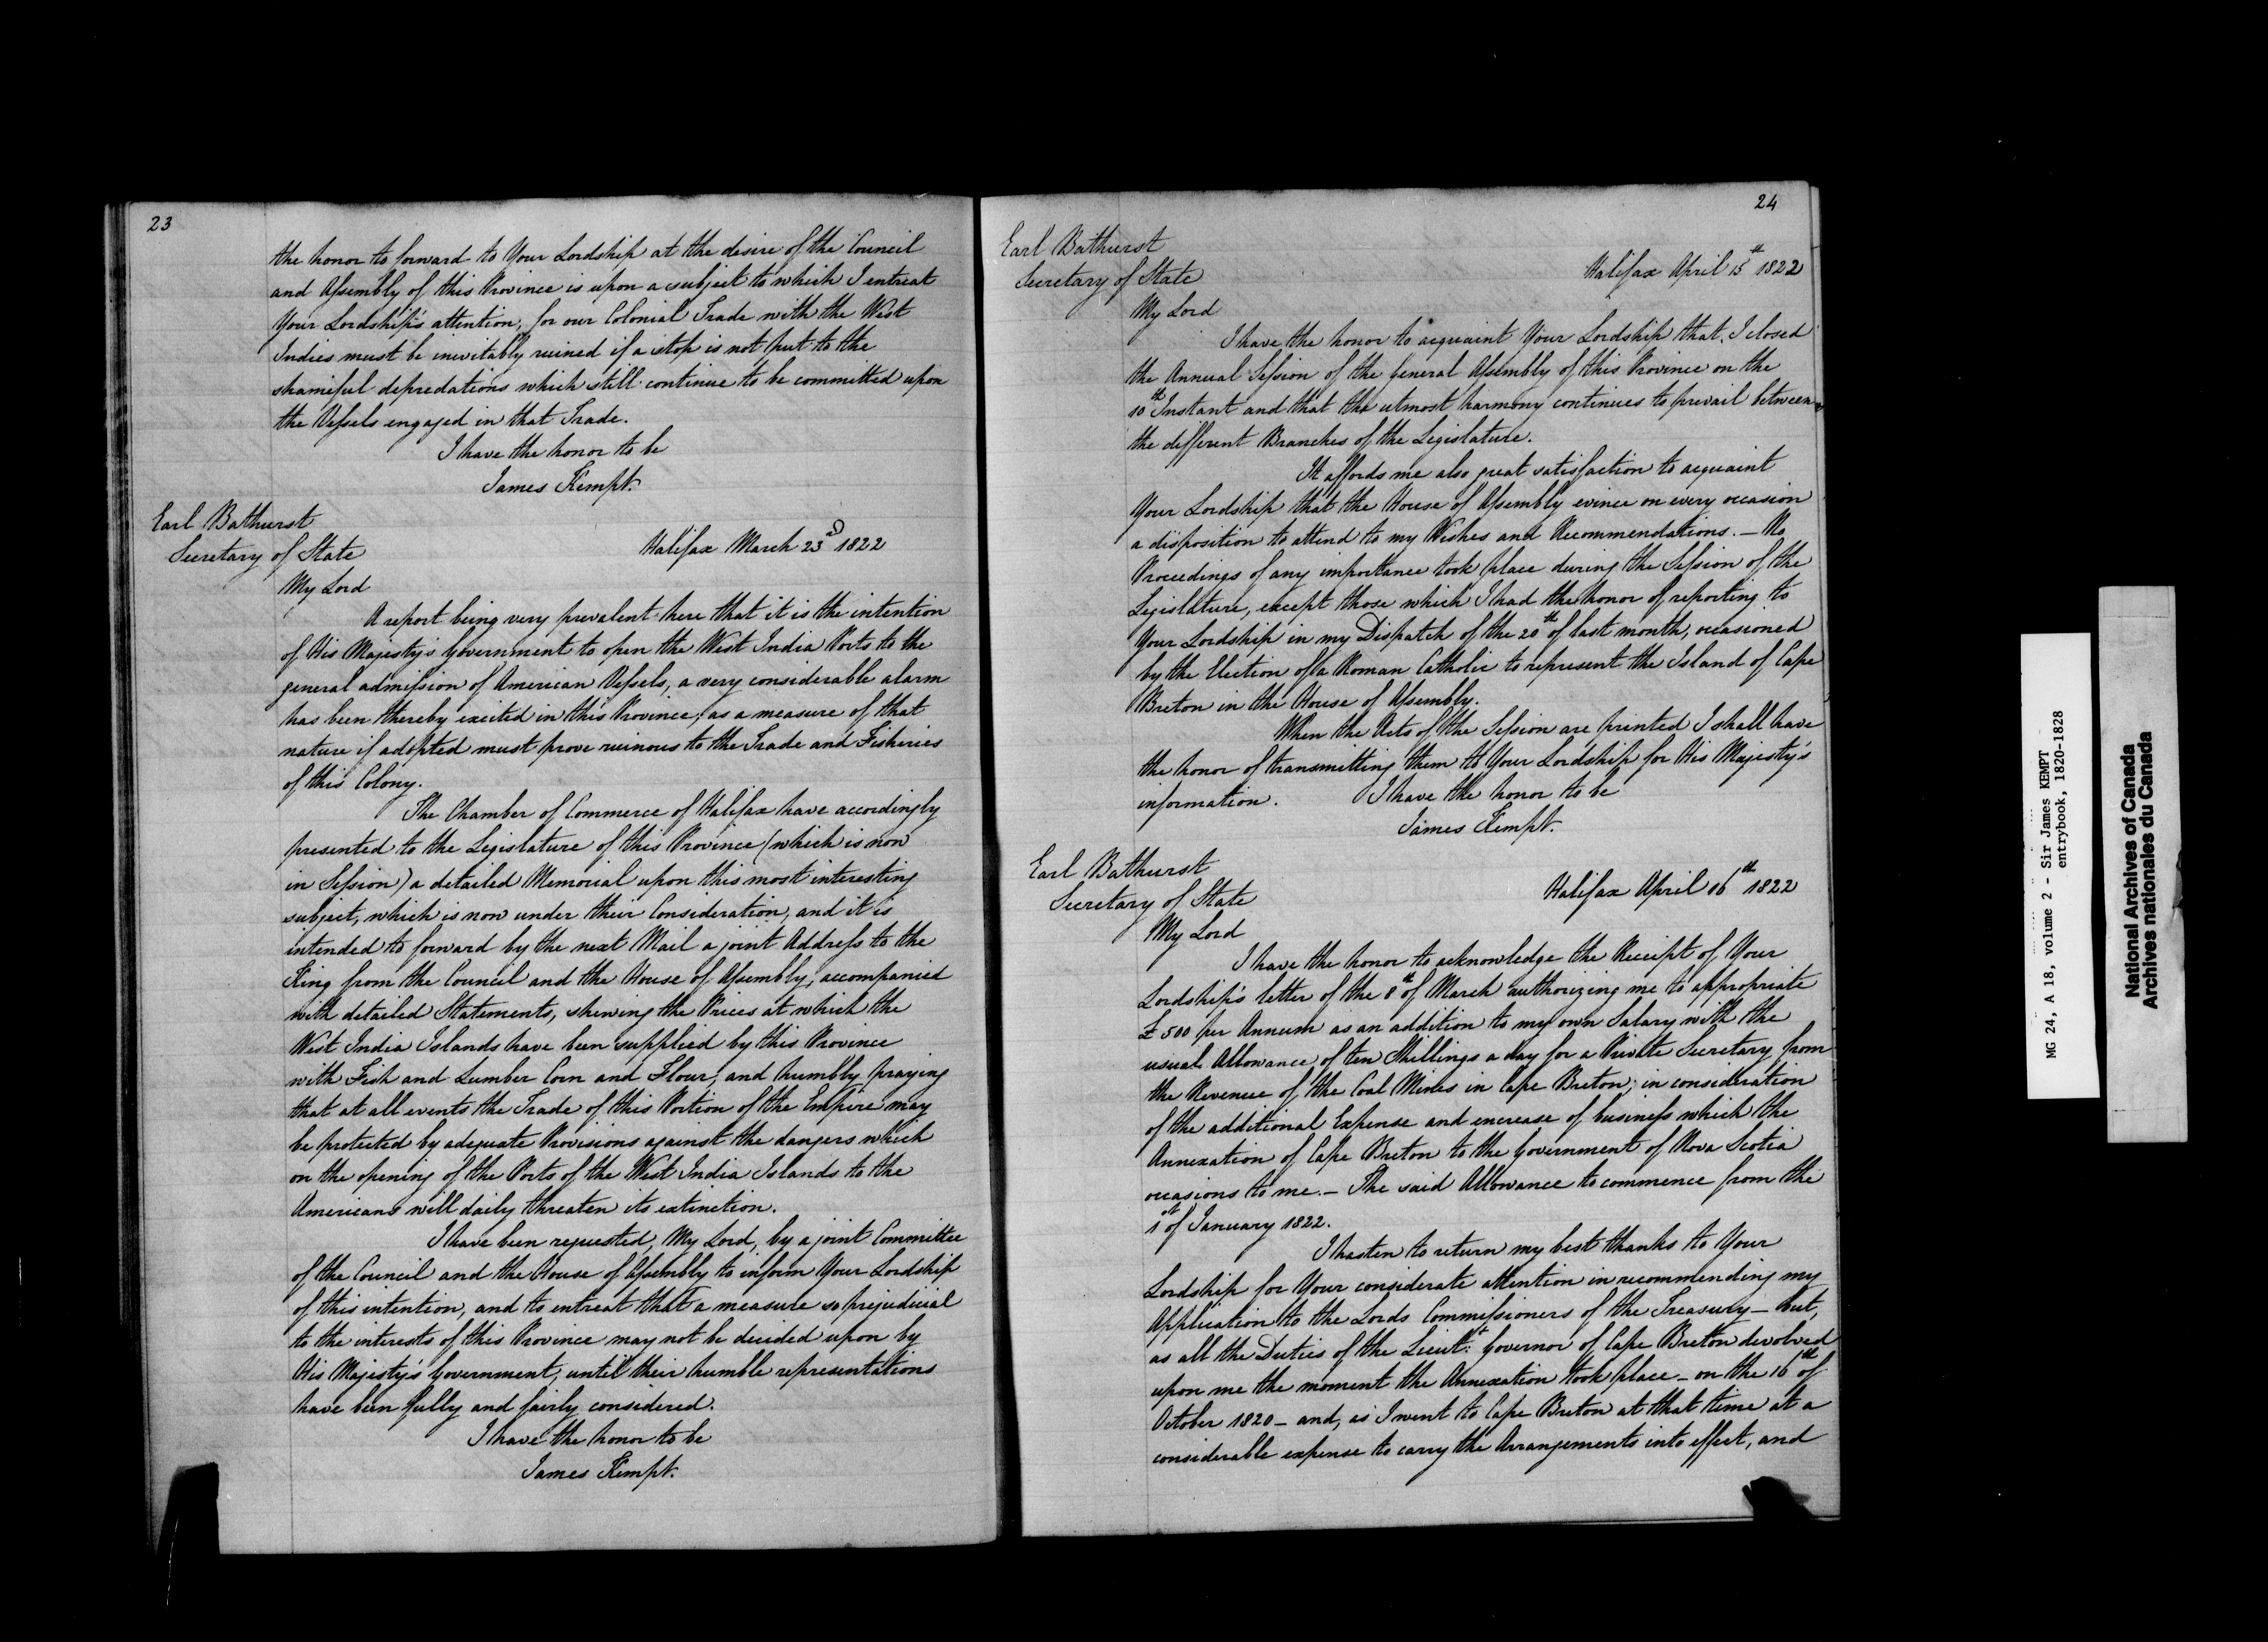 23
the honor to forward to Your Lordship at the desire of the Council
and Assembly of this Province is upon a subject to which I entreat
Your Lordship's attention, for our Colonial Trade with the West
Indies must be inevitably ruined if a stop is not put to the
shameful depredations which still continue to be committed upon
the Vessels engaged in that Trade.
I have the honor to be
James Kempt.
Earl Bathurst
Secretary of State
Halifax March 23d 1822
My Lord
A report being very prevalent here that it is the intention
of His Majesty's Government to open the West India Ports to the
general admission of American Vessels, a very considerable alarm
has been thereby excited in this Province, as a measure of that
nature if adopted must prove ruinous to the Trade and Fisheries
of this Colony.
The Chamber of Commerce of Halifax have accordingly
presented to the Legislature of this Province (which is now
in Session) a detailed Memorial upon this most interesting
subject, which is now under their Consideration, and it is
intended to forward by the next Mail a joint Address to the
King from the Council and the House of Assembly, accompanied
with detailed Statements, shewing the Prices at which the
West India Islands have been supplied by this Province
with Fish and Lumber Corn and Flour, and humbly praying
that at all events the Trade of this Portion of the Empire may
be protected by adequate Provisions against the dangers which
on the opening of the Ports of the West India Islands to the
Americans will daily threaten its extinction.
I have been requested, My Lord, by a joint Committee
of the Council and the House of Assembly to inform Your Lordship
of this intention, and to entreat that a measure so prejudicial
to the interests of this Province may not be decided upon by
His Majesty's Government, until their humble representations
have been fully and fairly considered.
I have the honor to be
James Kempt.
24
Earl Bathurst
Secretary of State
Halifax April 15th 1822
My Lord
I have the honor to acquaint Your Lordship that I closed
the Annual Session of the General Assembly of this Province on the
10th Instant and that the utmost harmony continues to prevail between
the different Branches of the Legislature.
It affords me also great satisfaction to acquaint
Your Lordship that the House of Assembly evince on every occasion
a disposition to attend to my Wishes and Recommendations. - No
Proceedings of any importance took place during the Session of the
Legislature, except those which I had the honor of reporting to
Your Lordship in my Dispatch of the 20th of last month, occasioned
by the Election of a Roman Catholic to represent the Island of Cape
Breton in the House of Assembly.
When the Acts of the Session are printed I shall have
the honor of transmitting them to Your Lordship for His Majesty's
information. I have the honor to be
James Kempt.
Earl Bathurst
Secretary of State
Halifax April 16th 1822
My Lord
I have the honor to acknowledge the Receipt of Your
Lordship's letter of the 8th of March authorizing me to appropriate
£500 per Annum as an addition to my own Salary with the
usual Allowance of ten Shillings a day for a Private Secretary from
the Revenue of the Coal Mines in Cape Breton, in consideration
of the additional Expense and encrease of business which the
Annexation of Cape Breton to the Government of Nova Scotia
occasions to me. - The said Allowance to commence from the
1st of January 1822.
I hasten to return my best thanks to Your
Lordship for Your considerate attention in recommending my
Application to the Lords Commissioners of the Treasury - but,
as all the Duties of the Lieut. Governor of Cape Breton devolved
upon me the moment the Annexation took place - on the 16th of
October 1820 - and, as I went to Cape Breton at that time at a
considerable expense to carry the Arrangements into effect, and
MG 24, A 18, volume 2 - Sir James KEMPT
entrybook, 1820-1828
National Archives of Canada
Archives nationales du Canada